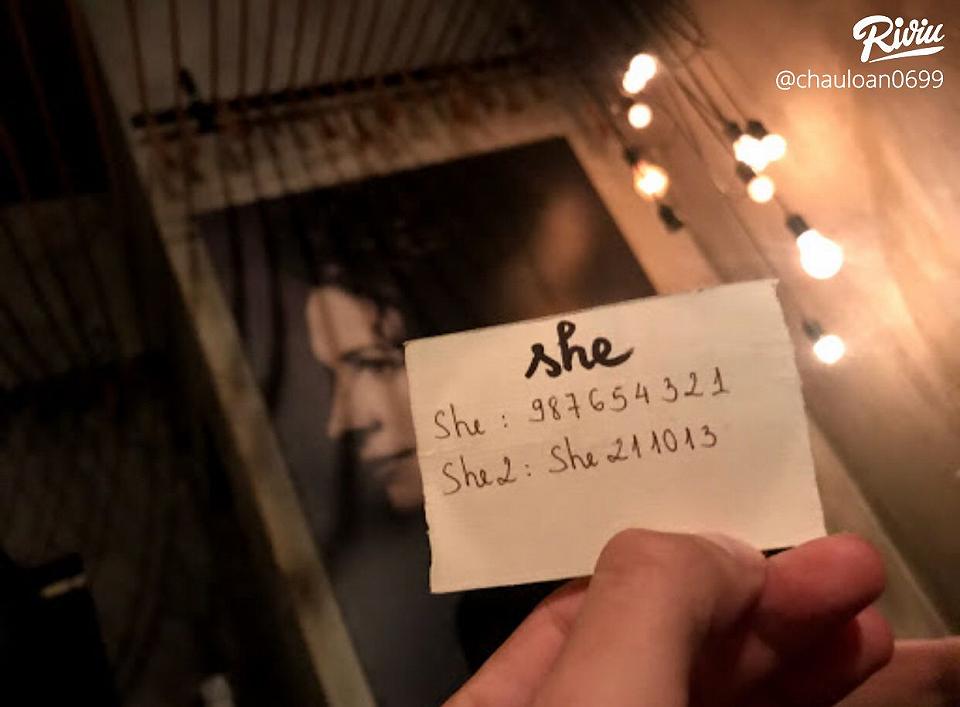 Riviu
@chauloan0699
she
She : 987654321
She2 : She211013